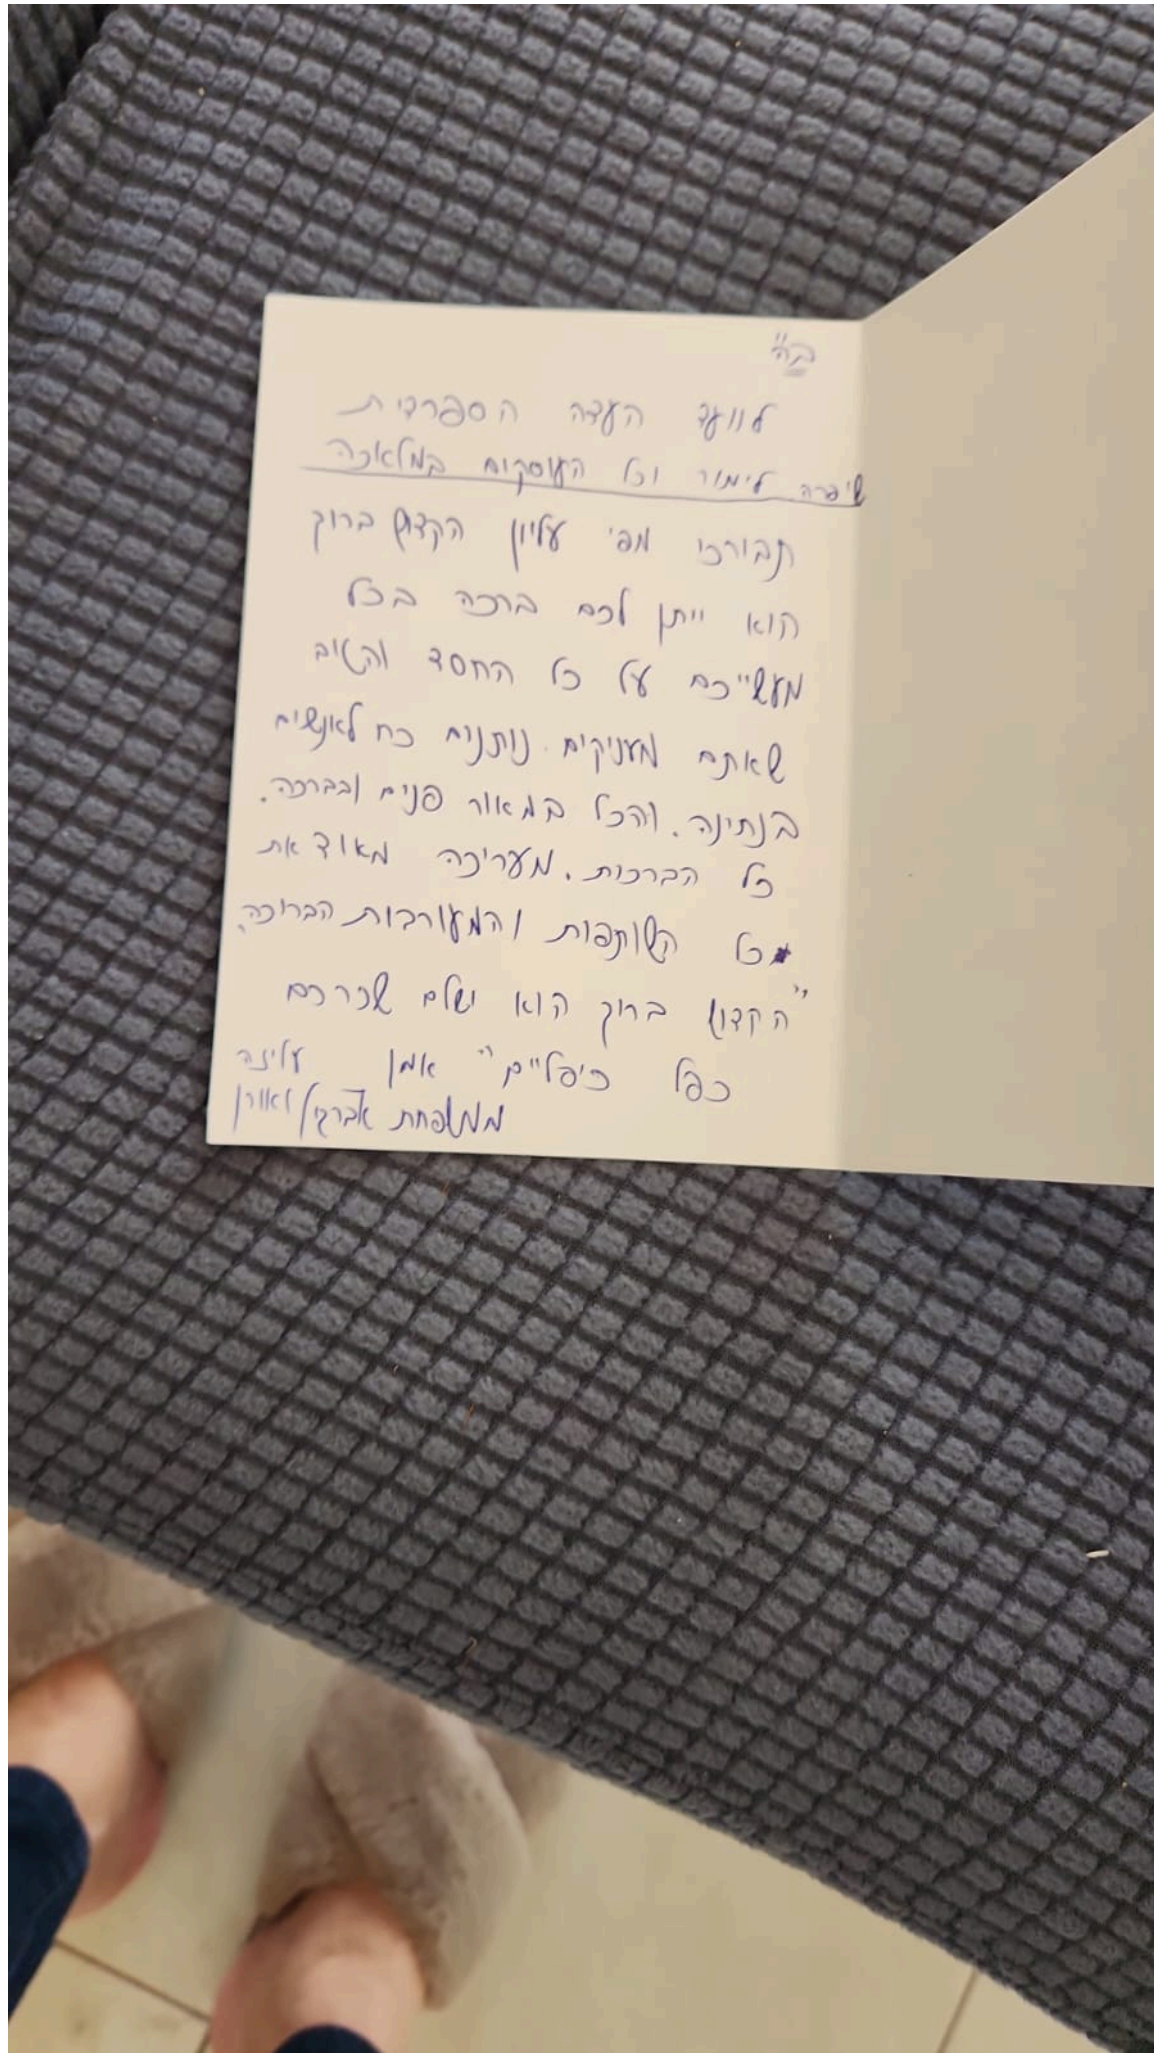 בה"
לוועד העדה הספרדית
שיפרה לימור וכל העוסקים במלאכה
תבורכו מפי עליון הקדוש ברוך
הוא ייתן לכם ברכה בכל
מעשייכם על כל החסד והטוב
שאתם מעניקים. נותנים כח לאנשים
בנתינה. והכל במאור פנים ובברכה.
כל הברכות. מעריכה מאוד את
כל השותפות והמעורבות הברוכה.
"הקדוש ברוך הוא ישלם שכרכם
כפל כיפליים" אמן עליזה
ממשפחת אברג'ל ואורן